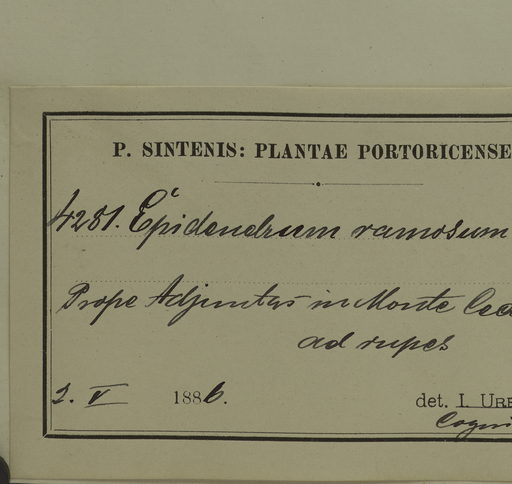 P. SINTENIS: PLANTAE PORTORICENSE
4281. Epidendrum ramosum
Prope Adjuntas in Monte Ced
ad rupes
2. V 1886.
det. I. URB
Cogni